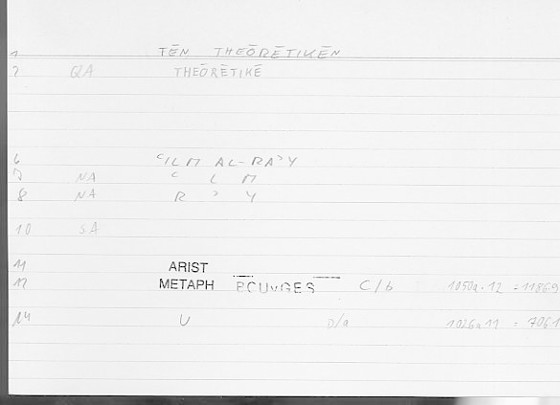 1 TĒN THEŌRĒTIKĒN
2 QA THEŌRĒTIKĒ
6 ʿILM AL-RAʾY
7 NA ʿ L M
8 NA R ʾ Y
10 SA
11 ARIST
12 METAPH BOUYGES C/b 1050a.12 = 1186.9
14 U D/a 1026a11 = 706.1